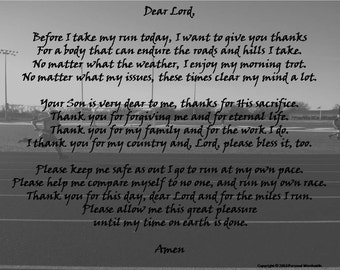 Dear Lord,
Before I take my run today, I want to give you thanks
For a body that can endure the roads and hills I take.
No matter what the weather, I enjoy my morning trot.
No matter what my issues, these times clear my mind a lot.
Your Son is very dear to me, thanks for His sacrifice.
Thank you for forgiving me and for eternal life.
Thank you for my family and for the work I do.
I thank you for my country and, Lord, please bless it, too.
Please keep me safe as out I go to run at my own pace.
Please help me compare myself to no one, and run my own race.
Thank you for this day, dear Lord and for the miles I run.
Please allow me this great pleasure
until my time on earth is done.
Amen